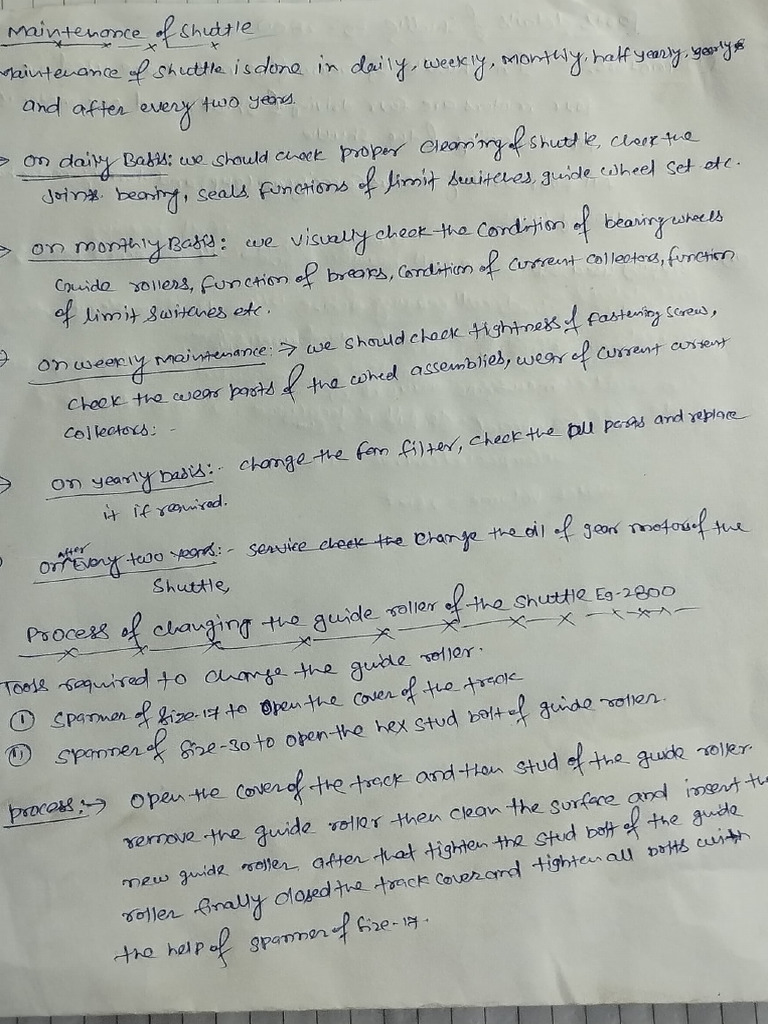 Maintenance of Shuttle
Maintenance of Shuttle is done in daily, weekly, monthly, half yearly, yearly
and after every two years
→ on daily Basis: we should check proper cleaning of shuttle, check the
Joins. bearing, seals functions of limit switches, guide wheel set etc.
→ on monthly Basis: we visually check the condition of bearing wheels
Guide rollers, function of breaks, condition of current collectors, function
of limit switches etc.
→ on weekly maintenance: → we should check tightness of fastening screw,
check the wear parts of the wheel assemblies, wear of current current
collectors: -
→ on yearly basis:- change the fan filter, check the all parts and replace
it if required.
on after Every two years:- service check the change the oil of gear motors of the
Shuttle,
Process of changing the guide roller of the shuttle EQ-2800
Tools required to change the guide roller.
(i) spanner of size-17 to open the cover of the track
(ii) spanner of size-30 to open the hex stud bolt of guide roller.
process:→ open the cover of the track and then stud of the guide roller.
remove the guide roller then clean the surface and insert the
new guide roller, after that tighten the stud bolt of the guide
roller finally closed the track cover and tighten all bolts with
the help of spanner of size-17.